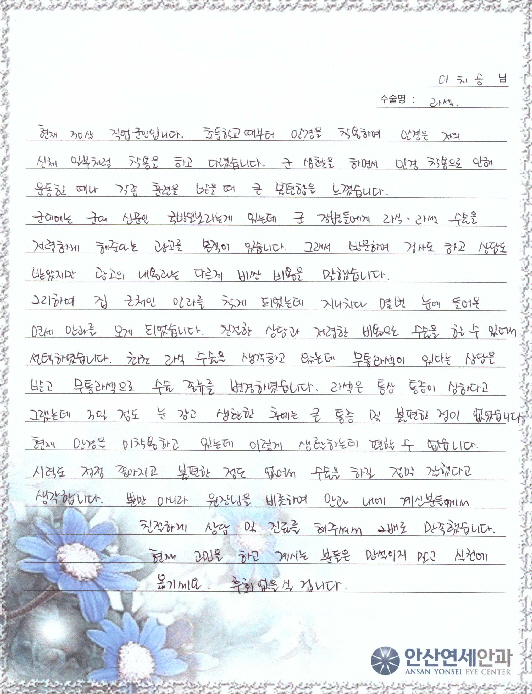 이치승 님
수술명 : 라섹.
현재 30대 직업군인입니다. 초등학교 때부터 안경을 착용하며 안경은 저의
신체 일부처럼 착용을 하고 다녔습니다. 군 생활을 하면서 안경 착용으로 인해
운동할 때나 각종 훈련을 받을 때 큰 불편함을 느꼈습니다.
군에는 군대 신문인 국방일보라는게 있는데 군 장병들에게 라식·라섹 수술을
저렴하게 해준다는 광고를 본적이 있습니다. 그래서 방문하여 검사도 하고 상담도
받았지만 광고의 내용과는 다르게 비싼 비용을 말했습니다.
그리하여 집 근처인 안과를 찾게 되었는데 지나치다 몇번 눈에 들어온
연세 안과를 오게 되었습니다. 친절한 상담과 저렴한 비용으로 수술을 할 수 있어서
선택하였습니다. 처음 라식 수술을 생각하고 왔는데 무통라섹이 있다는 상담을
받고 무통라섹으로 수술 종류를 변경하였습니다. 라섹은 통상 통증이 심하다고
그랬는데 3일 정도 눈 감고 생활한 후에는 큰 통증 및 불편한 점이 없었습니다
현재 안경을 미착용하고 있는데 이렇게 생활하는데 편할 수 없습니다.
시력도 점점 좋아지고 불편한 점도 없어서 수술을 하길 정말 잘했다고
생각합니다. 뿐만 아니라 원장님을 비롯하여 안과 내에 계신분들께서
친절하게 상담 및 진료를 해주셔서 2배로 만족했습니다.
현재 고민을 하고 계시는 분들은 망설이지 말고 실천에
옮기세요. 후회없을실 겁니다.
안산연세안과
ANSAN YONSEI EYE CENTER